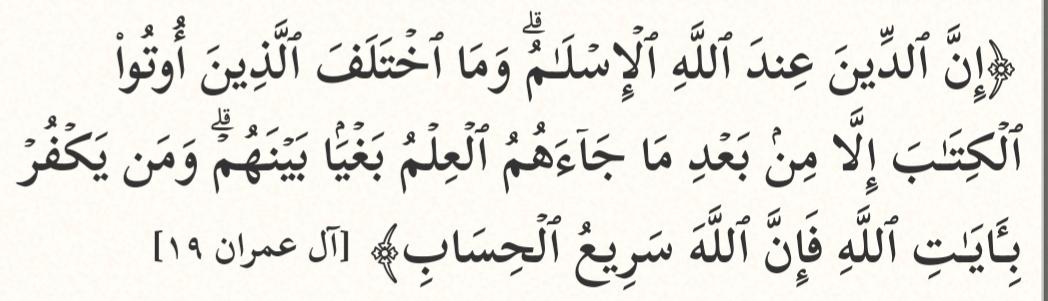 ﴿إِنَّ ٱلدِّينَ عِندَ ٱللَّهِ ٱلۡإِسۡلَٰمُۗ وَمَا ٱخۡتَلَفَ ٱلَّذِينَ أُوتُواْ
ٱلۡكِتَٰبَ إِلَّا مِنۢ بَعۡدِ مَا جَآءَهُمُ ٱلۡعِلۡمُ بَغۡيَۢا بَيۡنَهُمۡۗ وَمَن يَكۡفُرۡ
بِـَٔايَٰتِ ٱللَّهِ فَإِنَّ ٱللَّهَ سَرِيعُ ٱلۡحِسَابِ﴾ [آل عمران ١٩]